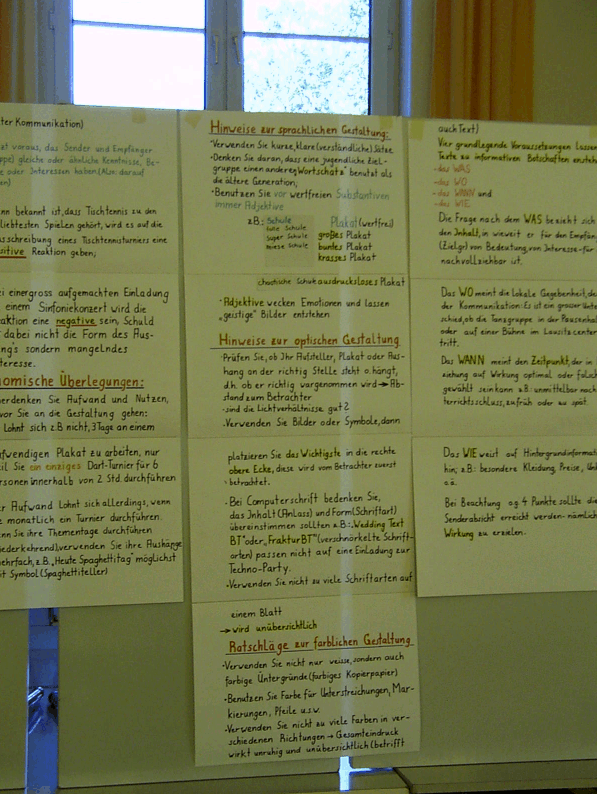 ter Kommunikation)
at voraus, das Sender und Empfänger
ppe) gleiche oder ähnliche Kenntnisse, Be-
e oder Interessen haben.(Also: darauf
en)
nn bekannt ist, dass Tischtennis zu den
liebtesten Spielen gehört, wird es auf die
usschreibung eines Tischtennisturniers eine
sitive Reaktion geben;
ei einer gross aufgemachten Einladung
einem Sinfoniekonzert wird die
aktion eine negative sein, Schuld
dabei nicht die Form des Aus-
ngs sondern mangelndes
teresse.
nomische Überlegungen:
erdenken Sie Aufwand und Nutzen,
vor Sie an die Gestaltung gehen:
Lohnt sich z.B. nicht, 3 Tage an einem
ufwendigen Plakat zu arbeiten, nur
il Sie ein einziges Dart-Turnier für 6
ersonen innerhalb von 2 Std. durchführen
r Aufwand lohnt sich allerdings, wenn
e monatlich ein Turnier durchführen.
nn Sie ihre Thementage durchführen
iederkehrend), verwenden Sie ihre Aushänge
ehrfach, z.B. „Heute Spaghettitag" möglichst
it Symbol (Spaghettiteller)
Hinweise zur sprachlichen Gestaltung:
·Verwenden Sie kurze, klare (verständliche) Sätze
·Denken Sie daran, dass eine jugendliche Ziel-
gruppe einen anderen „Wortschatz" benutzt als
die ältere Generation,
·Benutzen Sie vor wertfreien Substantiven
immer Adjektive
z.B.: Schule Plakat (wertfrei)
gute Schule großes Plakat
super Schule buntes Plakat
miese Schule krasses Plakat
chaotische Schule ausdrucksloses Plakat
·Adjektive wecken Emotionen und lassen
„geistige" Bilder entstehen
Hinweise zur optischen Gestaltung
·Prüfen Sie, ob Ihr Aufsteller, Plakat oder Aus-
hang an der richtig Stelle steht o. hängt,
d.h. ob er richtig wargenommen wird → Ab-
stand zum Betrachter
·sind die Lichtverhältnisse gut?
·Verwenden Sie Bilder oder Symbole, dann
platzieren Sie das Wichtigste in die rechte
obere Ecke, diese wird vom Betrachter zuerst
betrachtet.
·Bei Computerschrift bedenken Sie,
das Inhalt (Anlass) und Form (Schriftart)
übereinstimmen sollten z.B.: „Wedding Text
BT" oder „Fraktur BT" (verschnörkelte Schrift-
arten) passen nicht auf eine Einladung zur
Techno-Party.
·Verwenden Sie nicht zu viele Schriftarten auf
einem Blatt
→ wird unübersichtlich
Ratschläge zur farblichen Gestaltung
·Verwenden Sie nicht nur weisse, sondern auch
farbige Untergründe (farbiges Kopierpapier)
·Benutzen Sie Farbe für Unterstreichungen, Mar-
kierungen, Pfeile u.s.w.
·Verwenden Sie nicht zu viele Farben in ver-
schiedenen Richtungen → Gesamteindruck
wirkt unruhig und unübersichtlich (betrifft
auch Text)
Vier grundlegende Voraussetzungen lassen
Texte zu informativen Botschaften entsteh
-das WAS
-das WO
-das WANN und
-das WIE
Die Frage nach dem WAS bezieht sich
den Inhalt, in wieweit er für den Empfän
(Zielgr.) von Bedeutung, von Interesse für
nachvollziehbar ist.
Das WO meint die lokale Gegebenheit, de
der Kommunikation: Es ist ein grosser Unter
schied, ob die Tanzgruppe in der Pausenhal
oder auf einer Bühne im Lausitzcenter
tritt.
Das WANN meint den Zeitpunkt, der in
ziehung auf Wirkung optimal oder falsch
gewählt sein kann z.B. unmittelbar nach
terrichtsschluss, zu früh oder zu spät.
Das WIE weist auf Hintergrundinformat
hin; z.B.: besondere Kleidung, Preise, Unk
c.ä.
Bei Beachtung o.g. 4 Punkte sollte die
Senderabsicht erreicht werden- nämlich
Wirkung zu erzielen.